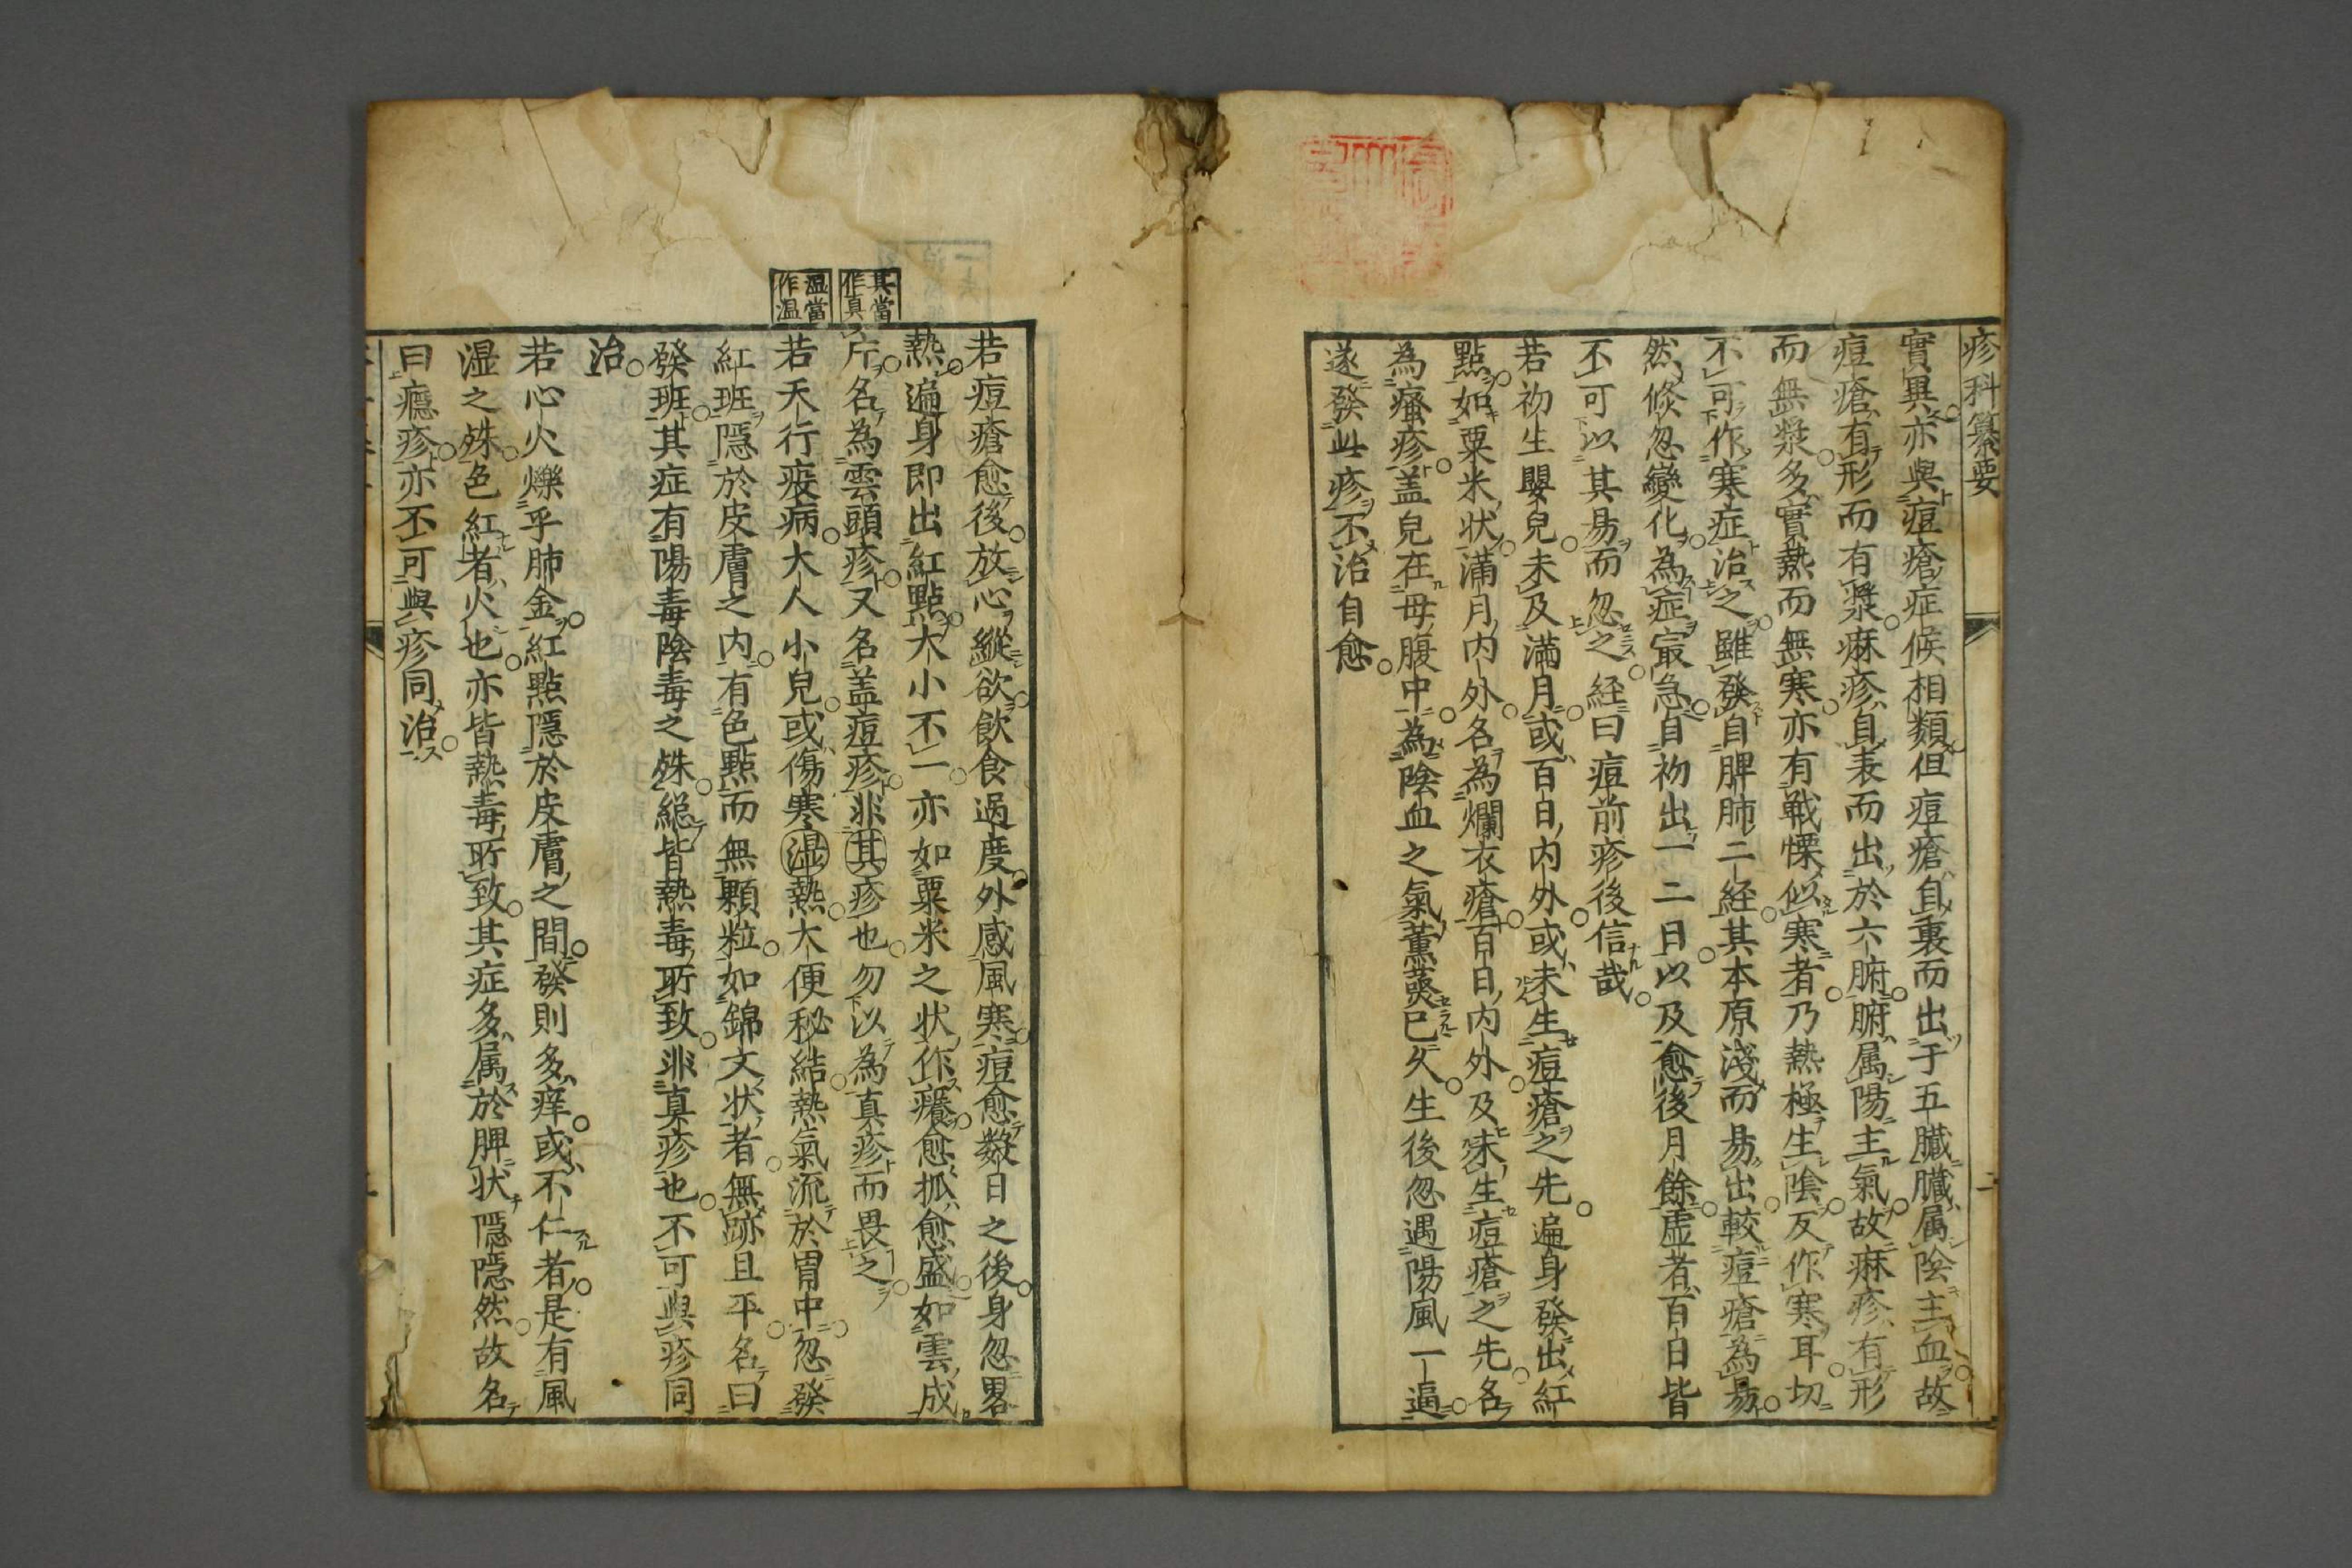 疹科纂要
二
實異亦與痘瘡症候相類但痘瘡自裏而出于五臟臟属陰主血故
痘瘡有形而有漿麻疹自表而出於六腑腑属陽主氣故麻疹有形
而無漿多實熱而無寒亦有戰慄似寒者乃熱極生陰反作寒耳切
不可作寒症治之雖發自脾肺二經其本原淺而易出較痘瘡為易
然倐忽變化為症寂急自初出一二日以及愈後月餘虚者百日皆
不可以其易而忽之経曰痘前疹後信哉
若初生嬰兒未及滿月或百日内外或未生痘瘡之先遍身發出紅
點如粟米状滿月内外名為爛衣瘡百日内外及未生痘瘡之先名
為瘙疹盖兒在母腹中為陰血之氣薰蒸已久生後忽遇陽風一逼
遂發此疹不治自愈
其當作真
湿當作温
若痘瘡愈後放心縱欲飲食過度外感風寒痘愈數日之後身忽畧
熱遍身即出紅點大小不一亦如粟米之状作癢愈抓愈盛如雲成
片名為雲頭疹又名盖痘疹非其疹也勿以為真疹而畏之
若天行疫病大人小兒或傷寒湿熱大便秘結熱氣流於胃中忽發
紅班隱於皮膚之内有色點而無顆粒如錦文状者無跡且平名曰
發班其症有陽毒陰毒之殊総皆熱毒所致非真疹也不可與疹同
治
若心火爍乎肺金紅點隱於皮膚之間發則多痒或不仁者是有風
湿之殊色紅者火也亦皆熱毒所致其症多属於脾状隱隱然故名
曰癮疹亦不可與疹同治